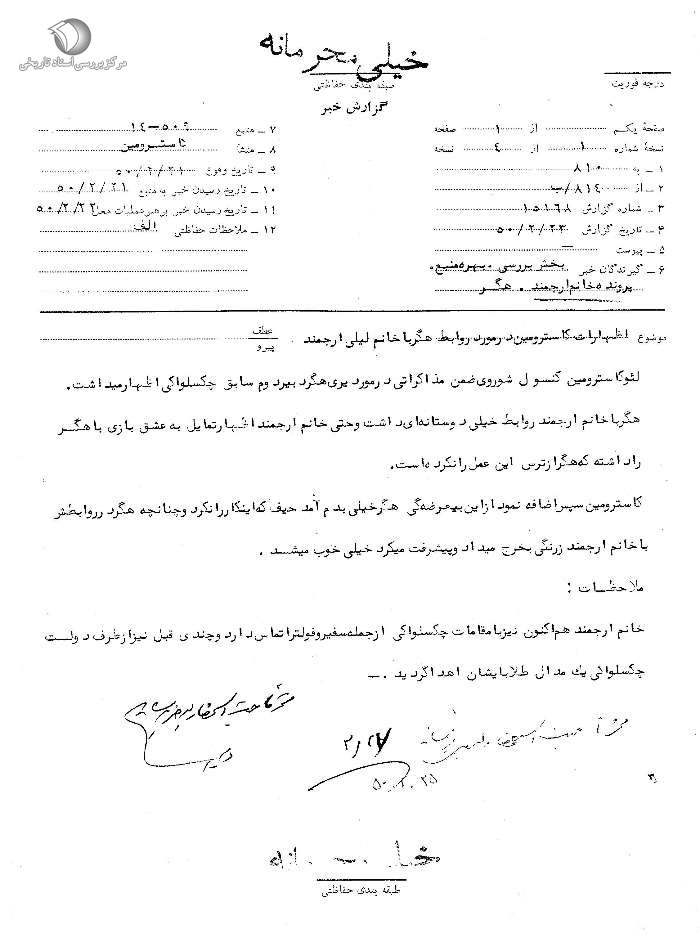 مرکز بررسی اسناد تاریخی
خیلی محرمانه
طبقه بندی حفاظتی
درجه فوریت
گزارش خبر
صفحهٔ یکم از ۱ صفحه
نسخهٔ شماره ۱ از ٤ نسخه
۱ ـ به ۸۱۰
۲ ـ از ۸۱٤/ب
۳ ـ شماره گزارش ۱۵۱۶۸
٤ ـ تاریخ گزارش ۵۰/۲/۲۳
۵ ـ پیوست ـ
۶ ـ گیرندگان خبر بخش بررسی ـ بهره منبع ـ
پرونده خانم ارجمند ـ هگر
۷ ـ منبع ۵۰۶-۱٤
۸ ـ منشأ کاسترومین
۹ ـ تاریخ وقوع
۱۰ ـ تاریخ رسیدن خبر به منبع ۵۰/۲/۲۱
۱۱ ـ تاریخ رسیدن خبر برهبر عملیات محل ۵۰/۲/۲۲
۱۲ ـ ملاحظات حفاظتی الف
موضوع اظهارات کاسترومین در مورد روابط هگر با خانم لیلی ارجمند
عطف
پیرو
لئوکاسترومین کنسول شوروی ضمن مذاکراتی در مورد یری هگر دبیر دوم سابق چکسلواکی اظهار میداشت.
هگر با خانم ارجمند روابط خیلی دوستانه ای داشت وحتی خانم ارجمند اظهار تمایل به عشق بازی با هگر
را داشته که هگر از ترس این عمل را نکرده است.
کاسترومین سپس اضافه نمود از این بیعرضه گی هگر خیلی بدم آمد حیف که اینکار را نکرد وچنانچه هگر در روابطش
با خانم ارجمند زرنگی بخرج میداد وپیشرفت میکرد خیلی خوب میشد .
ملاحظات :
خانم ارجمند هم اکنون نیز با مقامات چکسلواکی ازجمله سفیر وفولترا تماس دارد وچندی قبل نیز از طرف دولت
چکسلواکی یك مدال طلا بایشان اهدا گردید .ـ
۲/۲۷
۵۰.۲.۲۵
خیلی محرمانه
طبقه بندی حفاظتی